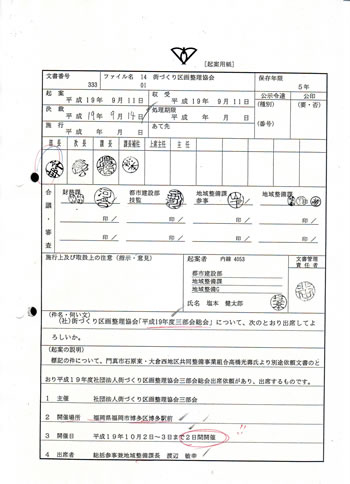 [起案用紙]
文書番号 333 ファイル名 14 01 街づくり区画整理協会 保存年限 5年
起案 平成19年9月11日 収受 平成19年9月11日 公示令達 公印
決裁 平成19年9月14日 処理期限 平成 年 月 日 (種別) (要・否)
施行 平成 年 月 日 あて先 (番号)
部長 次長 課長 課長補佐 上席主任 主任
合議・審査
財務課 都市建設部技監 地域整備課参事 地域整備課
印 印 印 印
印 印 印 印
施行上及び取扱上の注意(指示・意見) 起案者 内線 4053 文書管理責任者
都市建設部
地域整備課
地域整備G
氏名 塩本 健太郎
(件名・伺い文)
(社)街づくり区画整理協会「平成19年度三部会総会」について、次のとおり出席してよ
ろしいか。
(起案の説明)
標記の件について、門真市石原東・大倉西地区共同整備事業組合高橋光壽氏より別途依頼文書のと
おり平成19年度社団法人街づくり区画整理協会三部会総会出席依頼があり、出席するものです。
1 主催 社団法人街づくり区画整理協会三部会
2 開催場所 福岡県福岡市博多区博多駅前
3 開催日 平成19年10月2日~3日まで2日間開催
4 出席者 総括参事兼地域整備課長 渡辺 敏幸